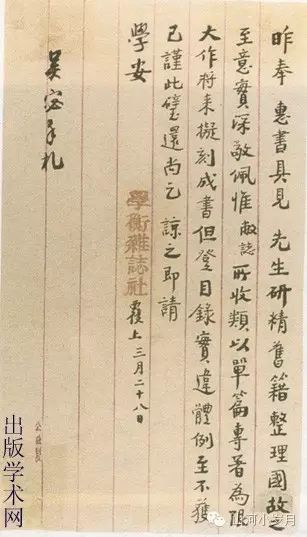 昨奉 惠書具見 先生研精舊籍整理國故之
至意實深敬佩惟敝誌所收類以單篇專著為限
大作將來擬刻成書但登目錄實違體例至不獲
已謹此璧還尚乞 諒之即請
學安
學衡雜誌社覆上 三月二十八日
吳宓手札
出版学术网